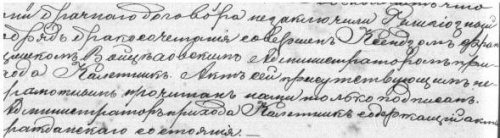 ми брачнаго договора незаключили Религiозный
обрядъ бракосочетанiя совершенъ Ксендзомъ Фран
цишкомъ Войцеховскимъ Администраторомъ при-
хода Калетникъ. Актъ сей присутствующимъ не-
грамотнымъ прочитанъ нами только подписанъ.
Администраторъ прихода Калетникъ содержащiй акты
гражданскаго состоянiя.